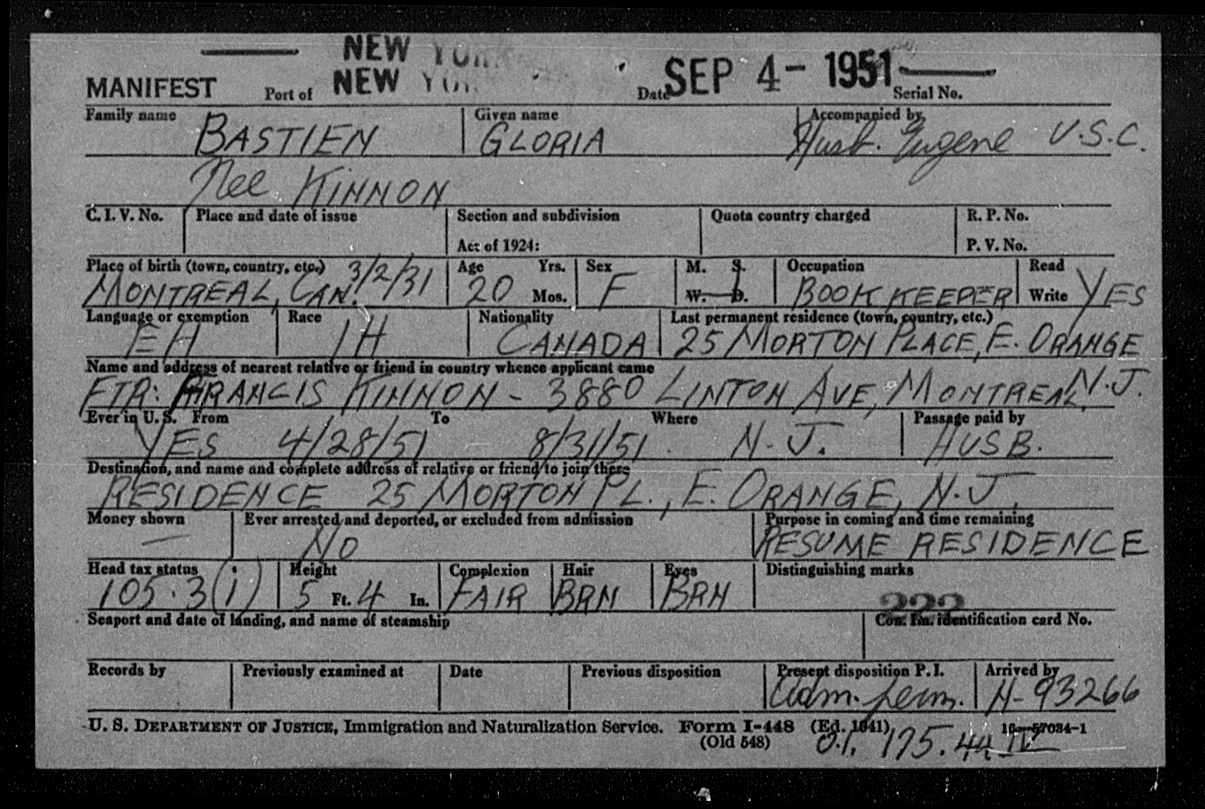 NEW YORK
MANIFEST Port of NEW YORK Date SEP 4 - 1951 Serial No.
Family name BASTIEN Given name GLORIA Accompanied by Husb. Eugene U.S.C.
Nee KINNON
C. I. V. No. Place and date of issue Section and subdivision Quota country charged R. P. No.
Act of 1924: P. V. No.
Place of birth (town, country, etc.) 3/2/31 Age Yrs. Sex M. S. Occupation Read
MONTREAL, CAN. 20 Mos. F W. D. BOOKKEEPER Write YES
Language or exemption Race Nationality Last permanent residence (town, country, etc.)
EH IH CANADA 25 MORTON PLACE, E. ORANGE
Name and address of nearest relative or friend in country whence applicant came
FTR: FRANCIS KINNON - 3880 LINTON AVE, MONTREAL N.J.
Ever in U. S. From To Where Passage paid by
YES 4/28/51 8/31/51 N.J. HUSB.
Destination, and name and complete address of relative or friend to join there
RESIDENCE 25 MORTON PL., E. ORANGE, N.J.
Money shown Ever arrested and deported, or excluded from admission Purpose in coming and time remaining
— NO RESUME RESIDENCE
Head tax status Height Complexion Hair Eyes Distinguishing marks
105.3(i) 5 Ft. 4 In. FAIR BRN BRN
222
Seaport and date of landing, and name of steamship Con. Im. identification card No.
Records by Previously examined at Date Previous disposition Present disposition P. I. Arrived by
Adm. perm. H-93266
U. S. DEPARTMENT OF JUSTICE, Immigration and Naturalization Service. Form I-448 (Ed. 1941) 16—57034-1
(Old 548) 175.44